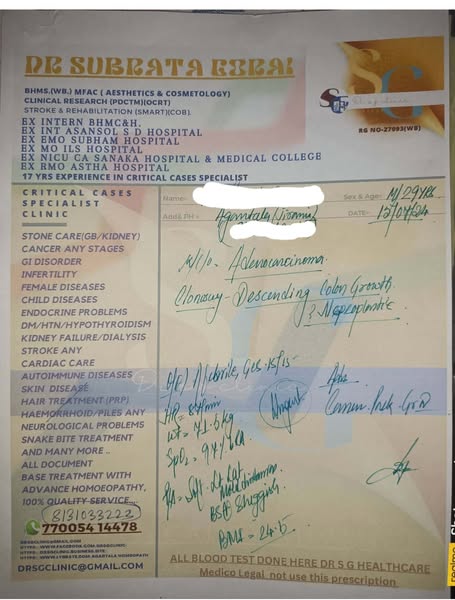 DR SUBRATA GORAI
BHMS.(WB.) MFAC ( AESTHETICS & COSMETOLOGY)
CLINICAL RESEARCH (PDCTM)(OCRT)
STROKE & REHABILITATION (SMART)(COB).
EX INTERN BHMC&H.
EX INT ASANSOL S D HOSPITAL
EX EMO SUBHAM HOSPITAL
EX MO ILS HOSPITAL
EX NICU CA SANAKA HOSPITAL & MEDICAL COLLEGE
EX RMO ASTHA HOSPITAL
17 YRS EXPERIENCE IN CRITICAL CASES SPECIALIST
RG NO-27993(WB)
CRITICAL CASES
SPECIALIST
CLINIC
STONE CARE(GB/KIDNEY)
CANCER ANY STAGES
GI DISORDER
INFERTILITY
FEMALE DISEASES
CHILD DISEASES
ENDOCRINE PROBLEMS
DM/HTN/HYPOTHYROIDISM
KIDNEY FAILURE/DIALYSIS
STROKE ANY
CARDIAC CARE
AUTOIMMUNE DISEASES
SKIN DISEASE
HAIR TREATMENT (PRP)
HAEMORRHOID/PILES ANY
NEUROLOGICAL PROBLEMS
SNAKE BITE TREATMENT
AND MANY MORE ..
ALL DOCUMENT
BASE TREATMENT WITH
ADVANCE HOMOEOPATHY,
100% QUALITY SERVICE....
8131033222
7700514478
DRSGCLINIC@GMAIL.COM
DRSGCLINIC@GMAIL.COM
Name:- Sex & Age:- M/29 YRS
Add& PH - DATE:- 12/04/24
Adenocarcinoma
- Descending Colon Growth
? Neoplastic
O/E) Afebrile,
HR = /min
wt = 71.6 kg
SpO2 = 97%
P/A = Soft
BS(+) Sluggish
BMI = 24.5
Urgent
Adv
ALL BLOOD TEST DONE HERE DR S G HEALTHCARE
Medico Legal, not use this prescription
realme